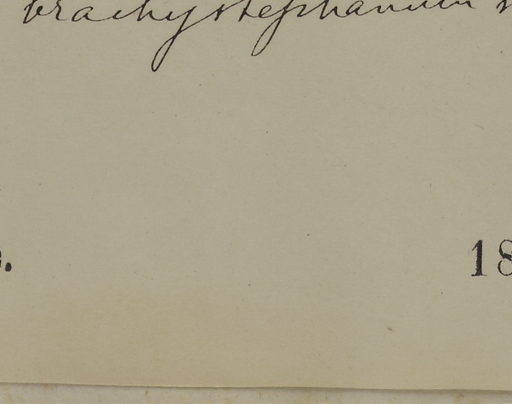 brachystephanum
18